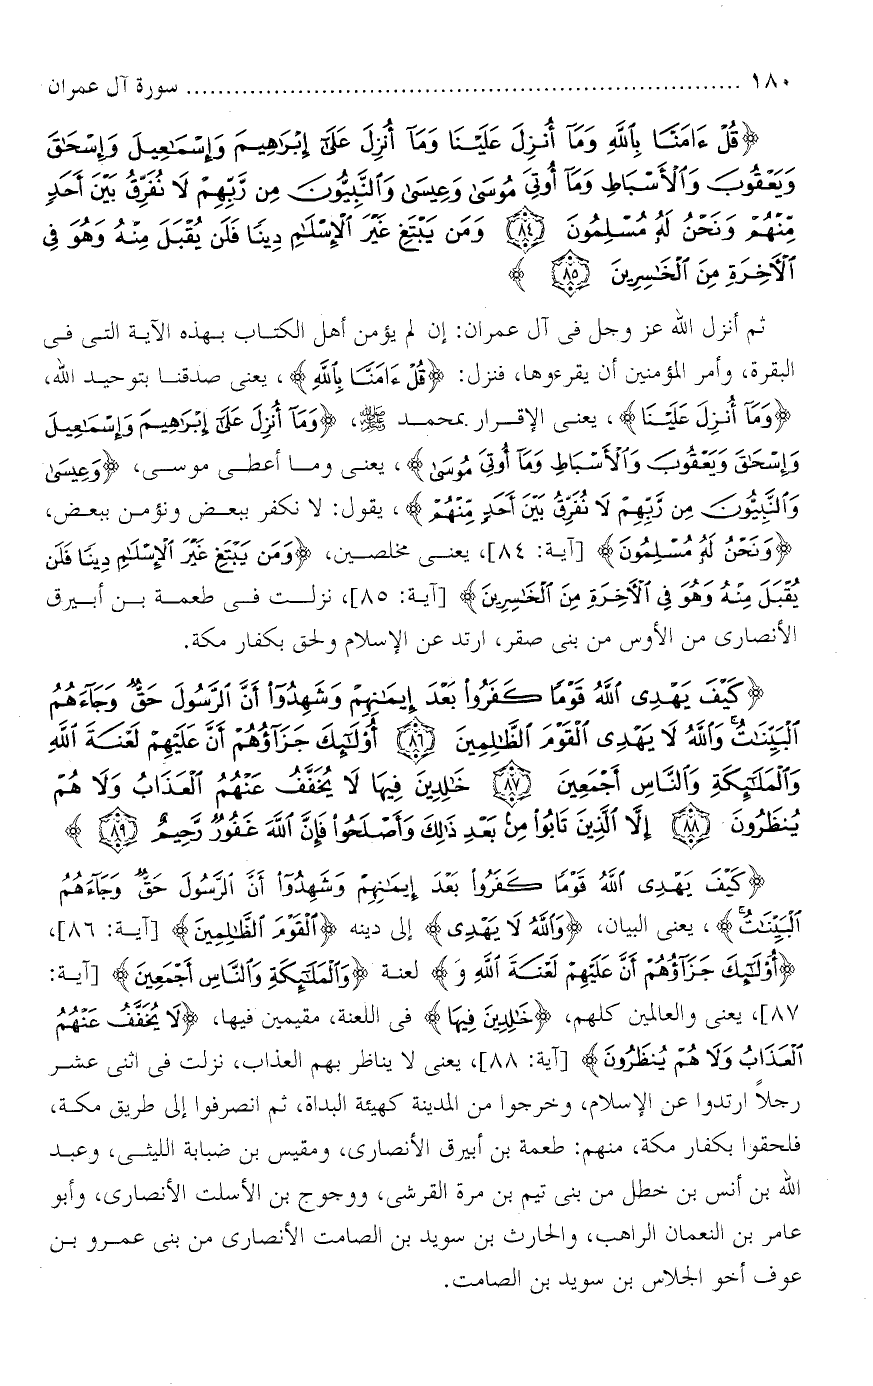 ١٨٠ ........................................................ سورة آل عمران
﴿قُلْ ءَامَنَّا بِٱللَّهِ وَمَآ أُنزِلَ عَلَيْنَا وَمَآ أُنزِلَ عَلَىٰٓ إِبْرَٰهِيمَ وَإِسْمَٰعِيلَ وَإِسْحَٰقَ
وَيَعْقُوبَ وَٱلْأَسْبَاطِ وَمَآ أُوتِىَ مُوسَىٰ وَعِيسَىٰ وَٱلنَّبِيُّونَ مِن رَّبِّهِمْ لَا نُفَرِّقُ بَيْنَ أَحَدٍ
مِّنْهُمْ وَنَحْنُ لَهُۥ مُسْلِمُونَ ٨٤ وَمَن يَبْتَغِ غَيْرَ ٱلْإِسْلَٰمِ دِينًا فَلَن يُقْبَلَ مِنْهُ وَهُوَ فِى
ٱلْأَخِرَةِ مِنَ ٱلْخَٰسِرِينَ ٨٥ ﴾
ثم أنزل الله عز وجل فى آل عمران: إن لم يؤمن أهل الكتاب بهذه الآية التى فى
البقرة، وأمر المؤمنين أن يقرءوها، فنزل: ﴿قُلْ ءَامَنَّا بِٱللَّهِ﴾، يعنى صدقنا بتوحيد الله،
﴿وَمَآ أُنزِلَ عَلَيْنَا﴾، يعنى الإقرار بمحمد ﷺ، ﴿وَمَآ أُنزِلَ عَلَىٰٓ إِبْرَٰهِيمَ وَإِسْمَٰعِيلَ
وَإِسْحَٰقَ وَيَعْقُوبَ وَٱلْأَسْبَاطِ وَمَآ أُوتِىَ مُوسَىٰ﴾، يعنى وما أعطى موسى، ﴿وَعِيسَىٰ
وَٱلنَّبِيُّونَ مِن رَّبِّهِمْ لَا نُفَرِّقُ بَيْنَ أَحَدٍ مِّنْهُمْ﴾، يقول: لا نكفر ببعض ونؤمن ببعض،
﴿وَنَحْنُ لَهُۥ مُسْلِمُونَ﴾ [آية: ٨٤]، يعنى مخلصين، ﴿وَمَن يَبْتَغِ غَيْرَ ٱلْإِسْلَٰمِ دِينًا فَلَن
يُقْبَلَ مِنْهُ وَهُوَ فِى ٱلْأَخِرَةِ مِنَ ٱلْخَٰسِرِينَ﴾ [آية: ٨٥]، نزلت فى طعمة بن أبيرق
الأنصارى من الأوس من بنى صقر، ارتد عن الإسلام ولحق بكفار مكة.
﴿كَيْفَ يَهْدِى ٱللَّهُ قَوْمًا كَفَرُوا۟ بَعْدَ إِيمَٰنِهِمْ وَشَهِدُوٓا۟ أَنَّ ٱلرَّسُولَ حَقٌّ وَجَآءَهُمُ
ٱلْبَيِّنَٰتُ ۚ وَٱللَّهُ لَا يَهْدِى ٱلْقَوْمَ ٱلظَّٰلِمِينَ ٨٦ أُو۟لَٰٓئِكَ جَزَآؤُهُمْ أَنَّ عَلَيْهِمْ لَعْنَةَ ٱللَّهِ
وَٱلْمَلَٰٓئِكَةِ وَٱلنَّاسِ أَجْمَعِينَ ٨٧ خَٰلِدِينَ فِيهَا لَا يُخَفَّفُ عَنْهُمُ ٱلْعَذَابُ وَلَا هُمْ
يُنظَرُونَ ٨٨ إِلَّا ٱلَّذِينَ تَابُوا۟ مِنۢ بَعْدِ ذَٰلِكَ وَأَصْلَحُوا۟ فَإِنَّ ٱللَّهَ غَفُورٌ رَّحِيمٌ ٨٩ ﴾
﴿كَيْفَ يَهْدِى ٱللَّهُ قَوْمًا كَفَرُوا۟ بَعْدَ إِيمَٰنِهِمْ وَشَهِدُوٓا۟ أَنَّ ٱلرَّسُولَ حَقٌّ وَجَآءَهُمُ
ٱلْبَيِّنَٰتُ ۚ﴾، يعنى البيان، ﴿وَٱللَّهُ لَا يَهْدِى﴾ إلى دينه ﴿ٱلْقَوْمَ ٱلظَّٰلِمِينَ﴾ [آية: ٨٦]،
﴿أُو۟لَٰٓئِكَ جَزَآؤُهُمْ أَنَّ عَلَيْهِمْ لَعْنَةَ ٱللَّهِ وَ﴾ لعنة ﴿وَٱلْمَلَٰٓئِكَةِ وَٱلنَّاسِ أَجْمَعِينَ﴾ [آية:
٨٧]، يعنى والعالمين كلهم، ﴿خَٰلِدِينَ فِيهَا﴾ فى اللعنة، مقيمين فيها، ﴿لَا يُخَفَّفُ عَنْهُمُ
ٱلْعَذَابُ وَلَا هُمْ يُنظَرُونَ﴾ [آية: ٨٨]، يعنى لا يناظر بهم العذاب، نزلت فى اثنى عشر
رجلاً ارتدوا عن الإسلام، وخرجوا من المدينة كهيئة البداة، ثم انصرفوا إلى طريق مكة،
فلحقوا بكفار مكة، منهم: طعمة بن أبيرق الأنصارى، ومقيس بن ضبابة الليثى، وعبد
الله بن أنس بن خطل من بنى تيم بن مرة القرشى، ووجوج بن الأسلت الأنصارى، وأبو
عامر بن النعمان الراهب، والحارث بن سويد بن الصامت الأنصارى من بنى عمرو بن
عوف أخو الجلاس بن سويد بن الصامت.